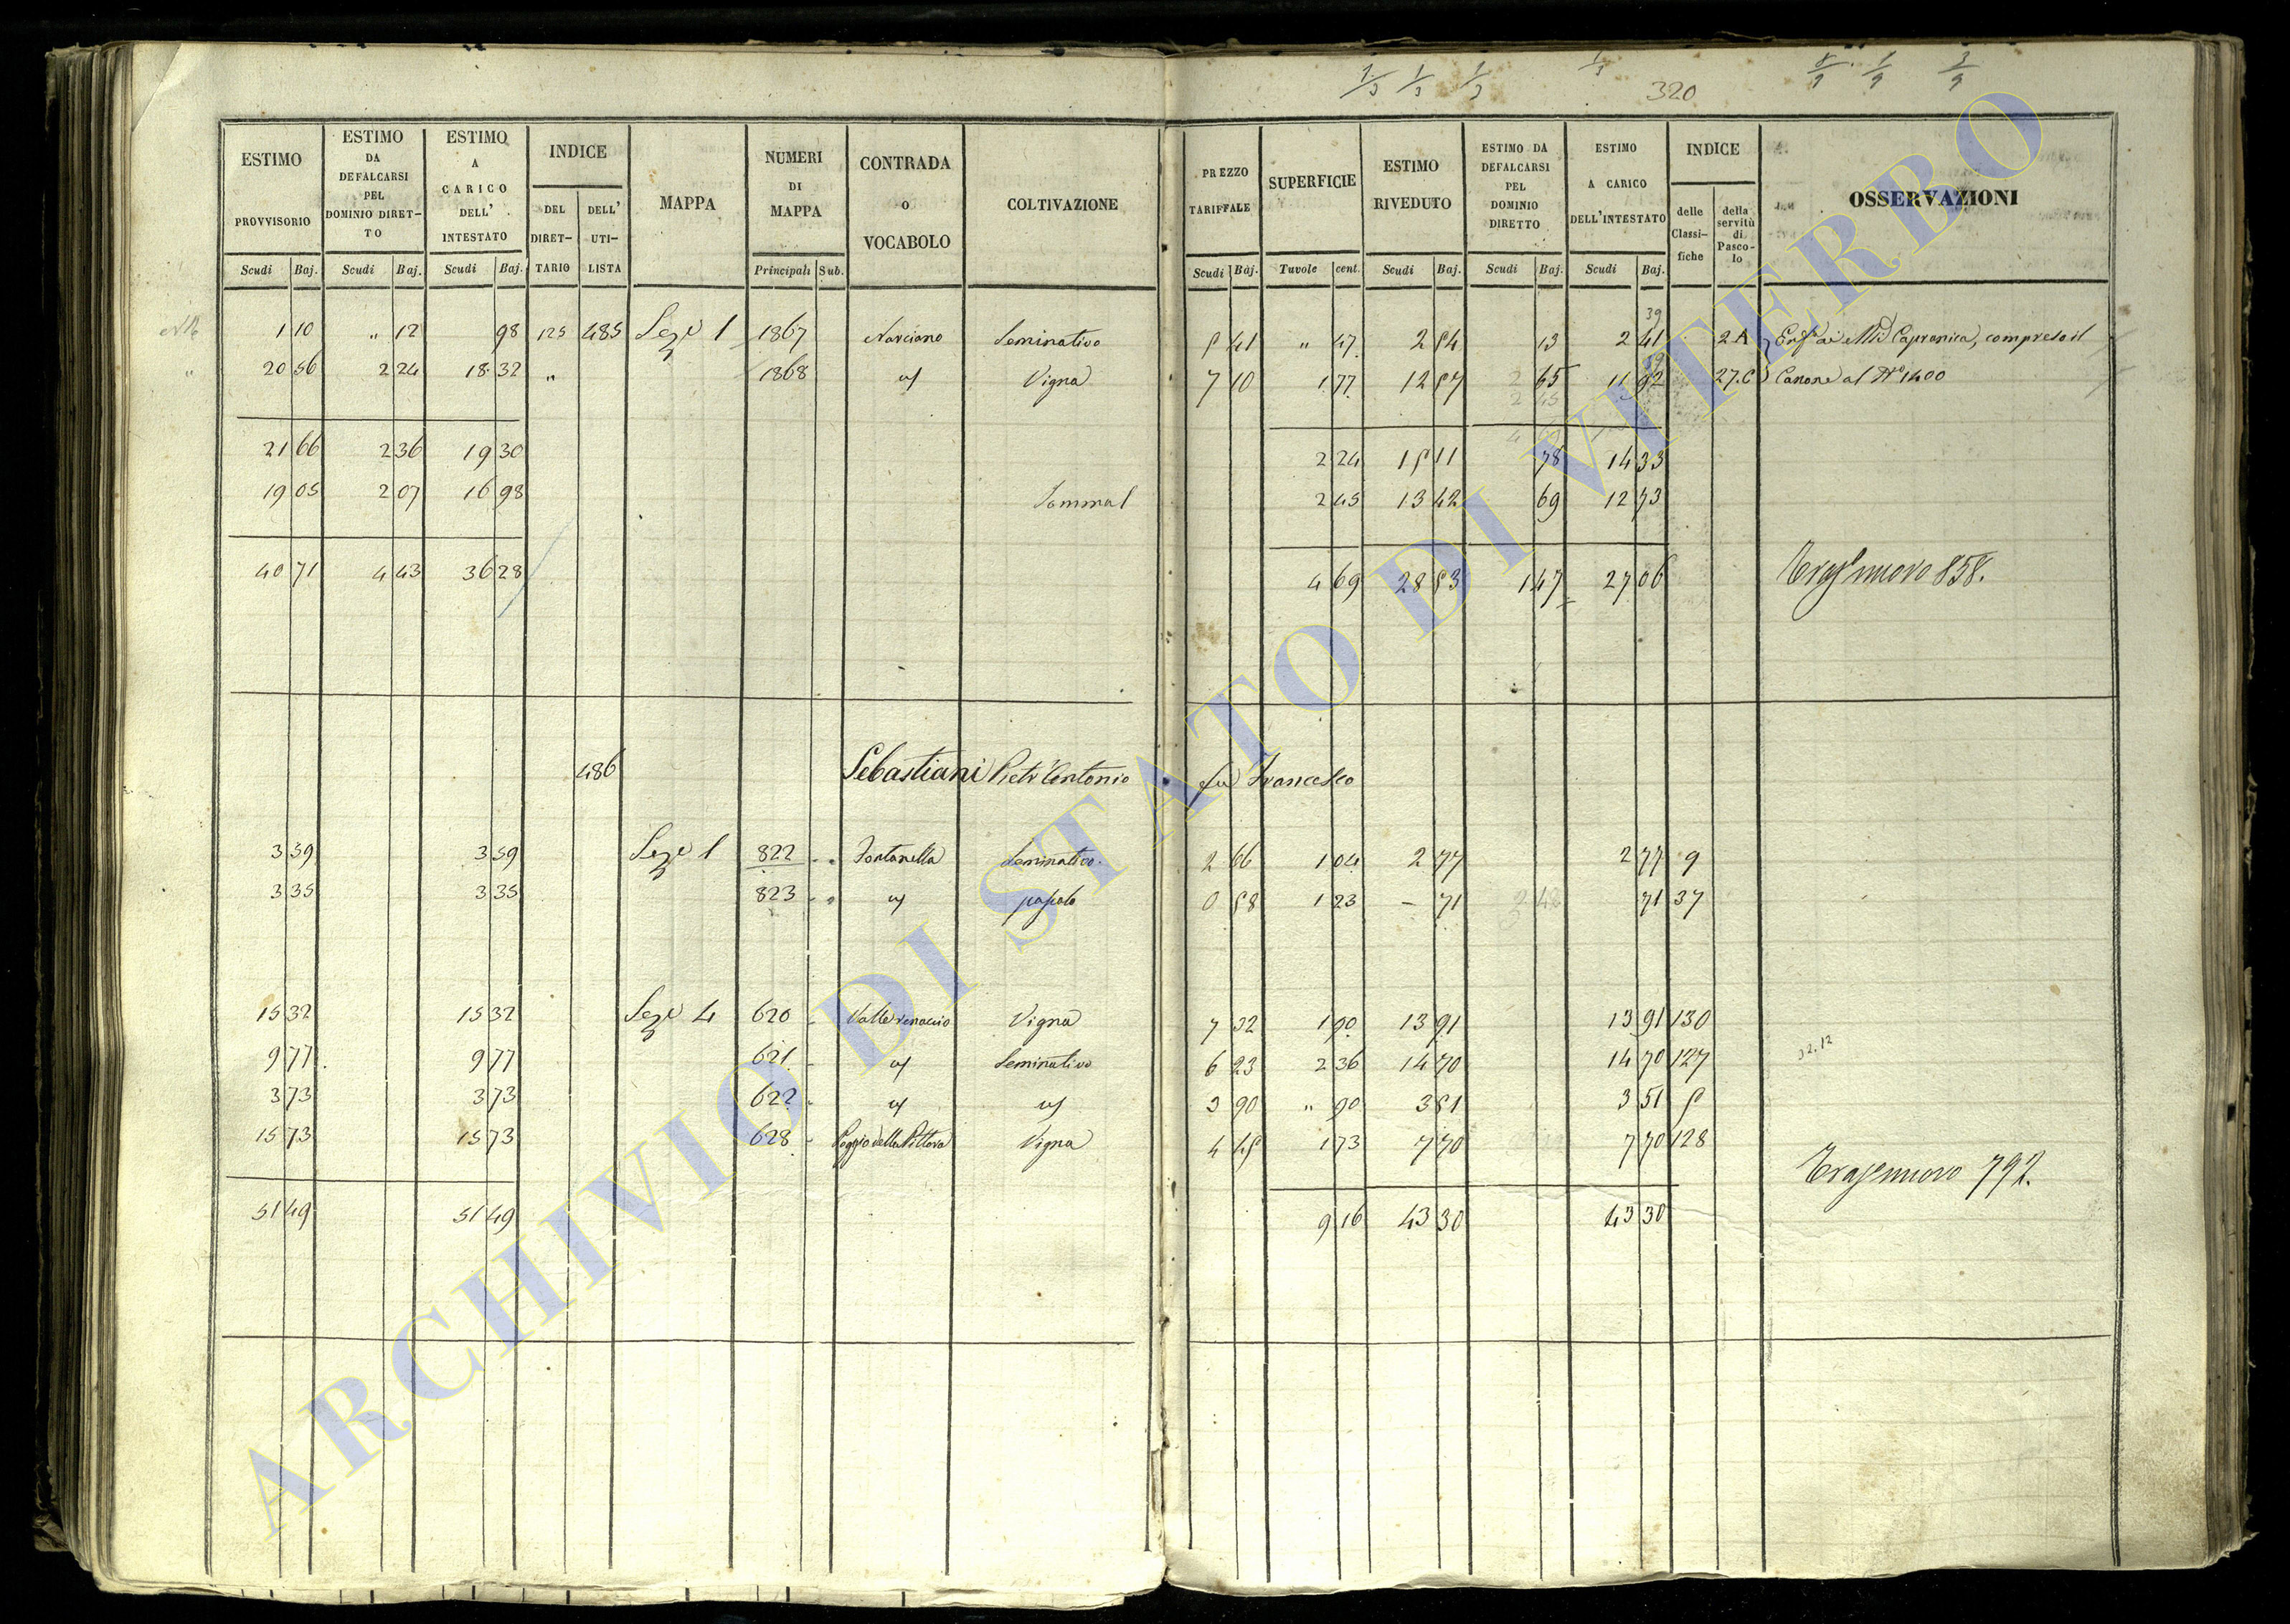 320
ESTIMO PROVVISORIO Scudi Baj.
ESTIMO DA DEFALCARSI PEL DOMINIO DIRET- TO Scudi Baj.
ESTIMO A CARICO DELL' INTESTATO Scudi Baj.
INDICE DEL DIRET- TARIO DELL' UTI- LISTA
MAPPA
NUMERI DI MAPPA Principali Sub.
CONTRADA o VOCABOLO
COLTIVAZIONE
PREZZO TARIFFALE Scudi Baj.
SUPERFICIE Tavole cent.
ESTIMO RIVEDUTO Scudi Baj.
ESTIMO DA DEFALCARSI PEL DOMINIO DIRETTO Scudi Baj.
ESTIMO A CARICO DELL'INTESTATO Scudi Baj.
INDICE delle Classi- fiche della servitù di Pasco- lo
OSSERVAZIONI
1 10 " 12 98 125 485 Seze 1 1867 Narciano Seminativo 5 41 " 47 2 54 13 2 41 2A
20 56 2 24 18 32 " 1868 Vigna 7 10 1 77 12 57 65 11 92 27.C Canone al N° 1400
21 66 2 36 19 30 2 24 15 11 78 14 33
19 05 2 07 16 98 Somma 1 2 45 13 42 69 12 73
40 71 4 43 36 28 4 69 28 53 1 47 27 06
nuovo 858.
486 Sebastiani Pietr'Antonio fu Francesco
3 59 3 59 Seze 1 822 Fontanella Seminativo 2 66 1 04 2 77 2 77 9
3 35 3 35 823 0 58 1 23 – 71 71 37
15 32 15 32 Seze 4 620 Vigna 7 32 1 90 13 91 13 91 130
9 77 9 77 621 Seminativo 6 23 2 36 14 70 14 70 127
3 73 3 73 622 3 90 " 90 3 51 3 51 5
15 73 15 73 628 Poggio della Vigna 4 45 1 73 7 70 7 70 128
51 49 51 49 9 16 43 30 43 30
nuovo 792.
ARCHIVIO DI STATO DI VITERBO